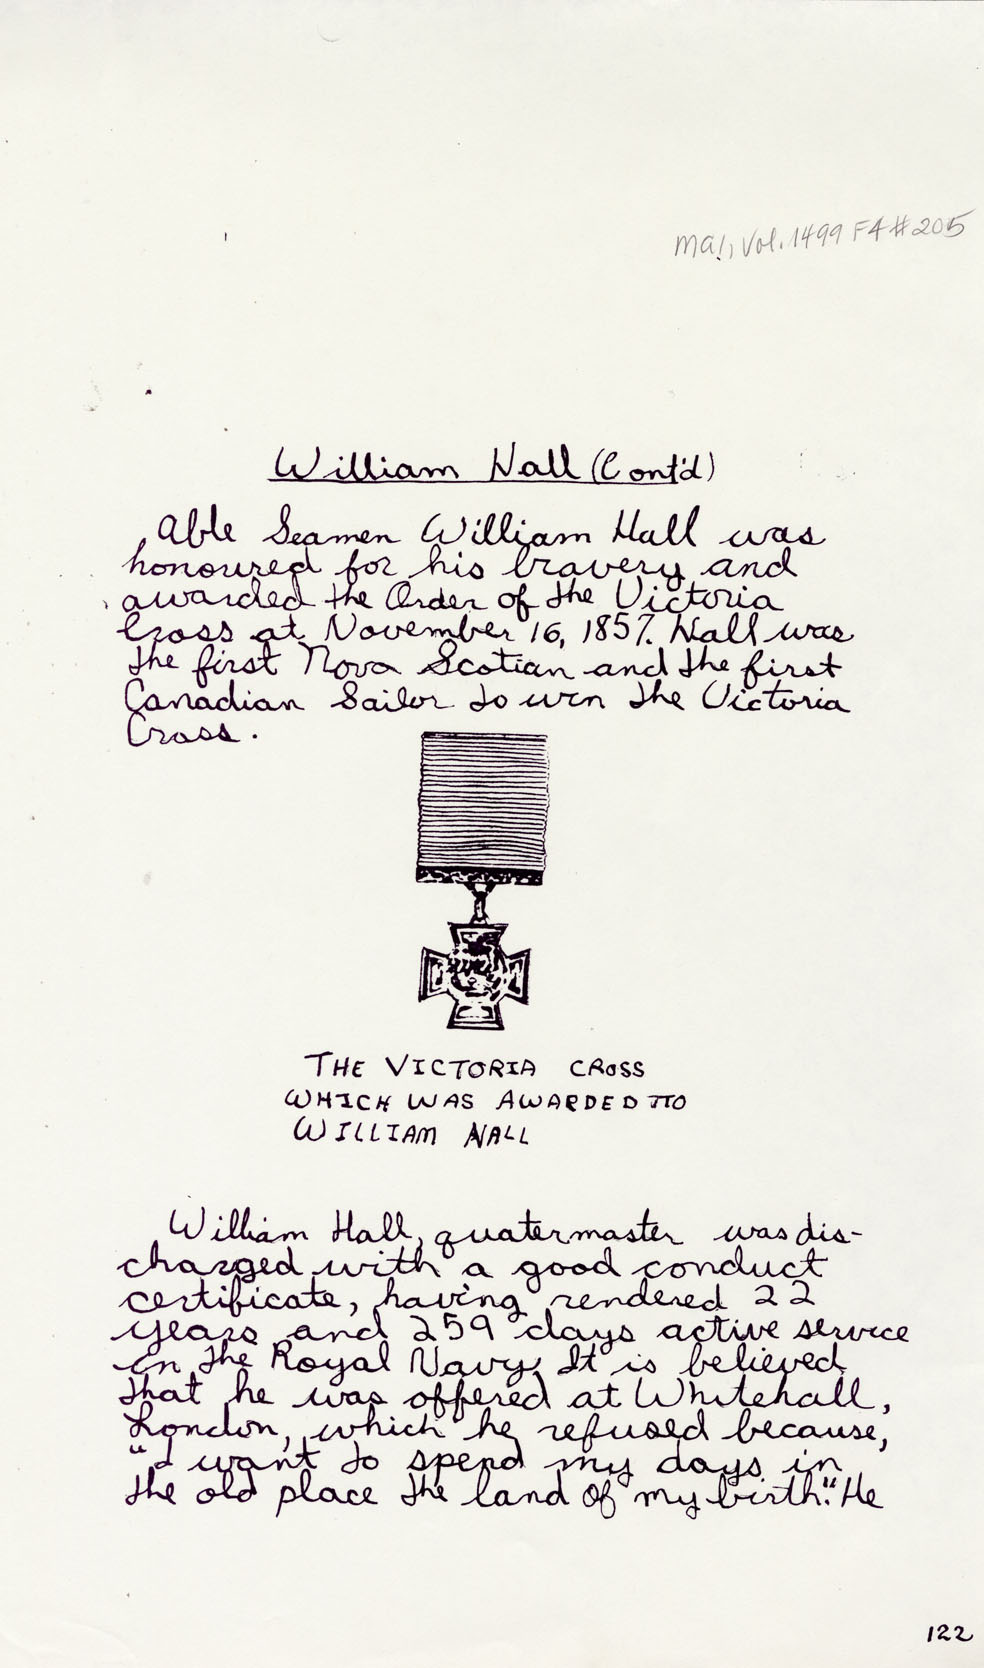 MG1, Vol. 1499 F4 #205
William Hall (Cont'd)
Able Seamen William Hall was
honoured for his bravery and
awarded the Order of the Victoria
Cross at November 16, 1857. Hall was
the first Nova Scotian and the first
Canadian Sailor to win the Victoria
Cross.
THE VICTORIA CROSS
WHICH WAS AWARDED TO
WILLIAM HALL
William Hall, quatermaster was dis-
charged with a good conduct
certificate, having rendered 22
years and 259 days active service
in the Royal Navy. It is believed
that he was offered at Whitehall,
London, which he refused because,
"I want to spend my days in
the old place the land of my birth." He
122